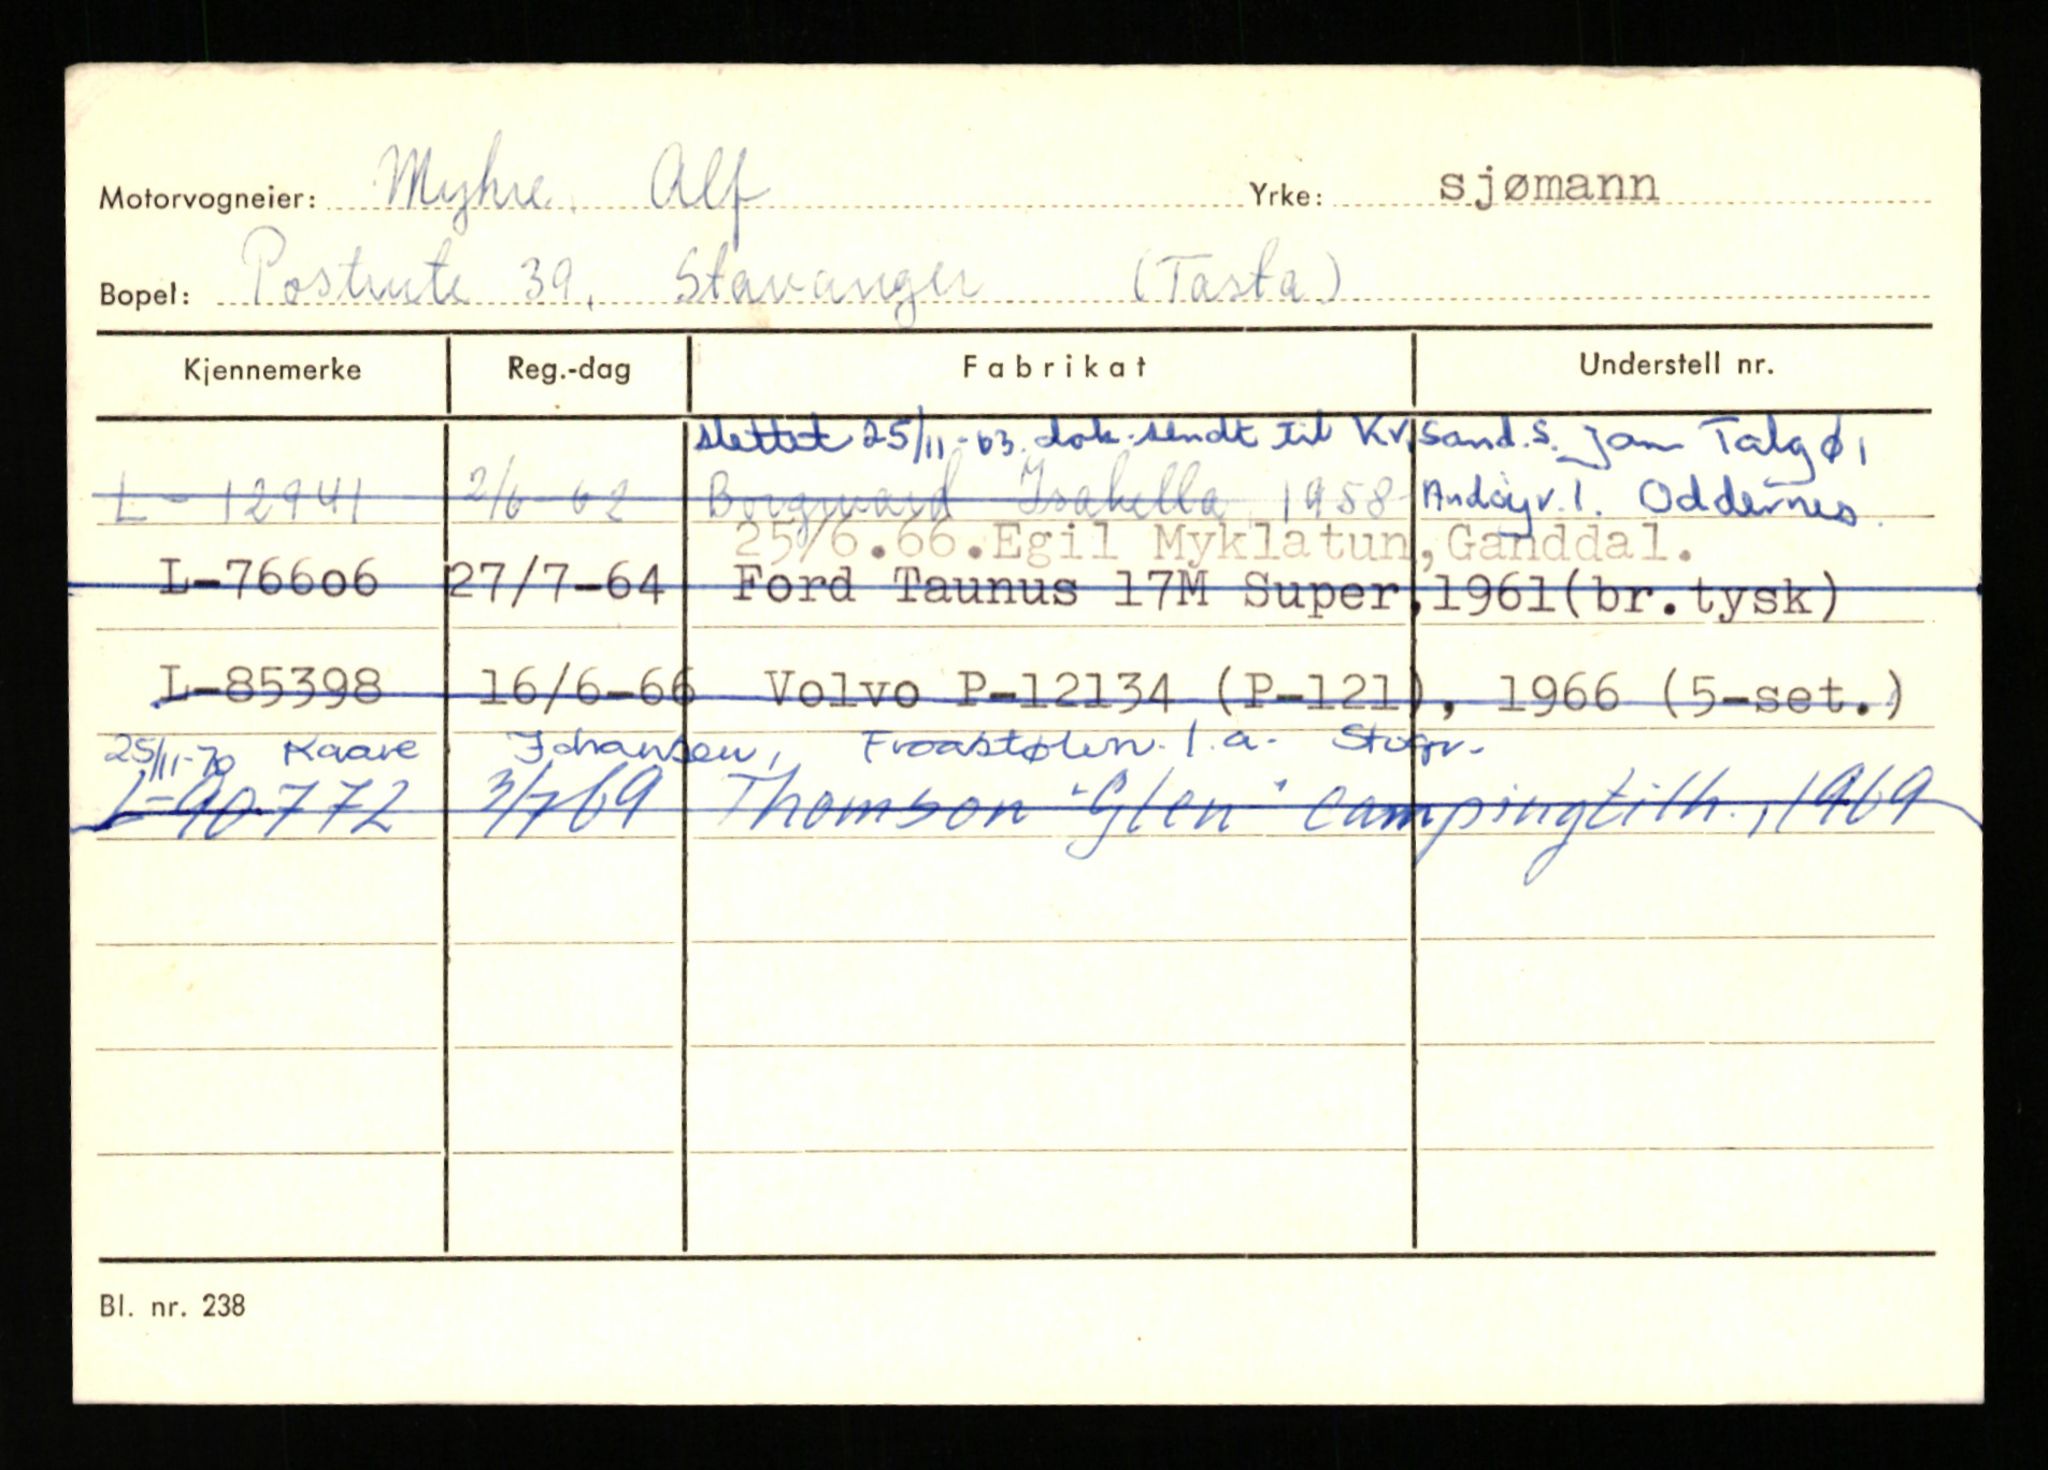 Motorvogneier: Myhre, Alf Yrke: sjømann
Bopel: Postrute 39, Stavanger (Tasta)
Kjennemerke Reg.-dag Fabrikat Understell nr.
slettet 25/11-63. dok. sendt til Kr.sand.S. Jan Talgø,
L-12941 2/6-62 Borgward Isabella 1958 Andøyv.1. Oddernes.
25/6.66.Egil Myklatun,Ganddal.
L-76606 27/7-64 Ford Taunus 17M Super,1961(br.tysk)
L-85398 16/6-66 Volvo P-12134 (P-121), 1966 (5-set.)
25/11-70 Kaare Johansen, Froastølen. 1.a. Stvgr.
L-90772 3/7 69 Thomson "Glen" campingtilh., 1969
Bl. nr. 238